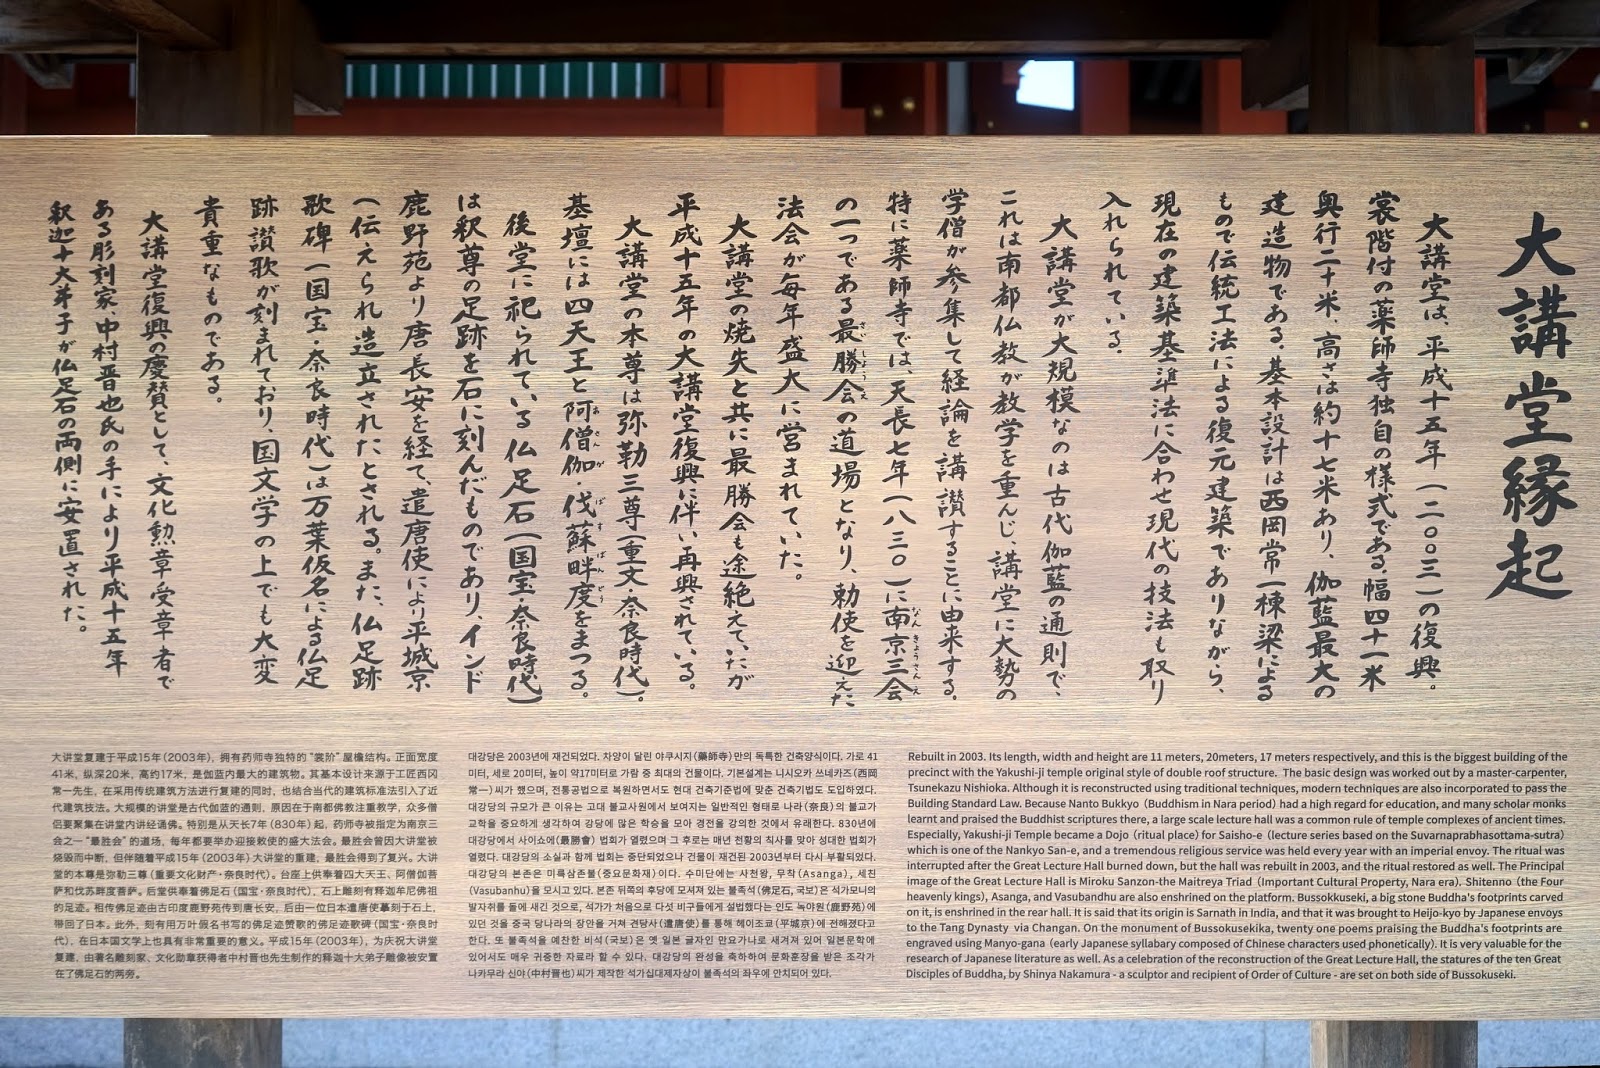 大講堂縁起
大講堂は、平成十五年(二〇〇三)の復興。
裳階付の薬師寺独自の様式である。幅四十一米
奥行二十米、高さは約十七米あり、伽藍最大の
建造物である。基本設計は西岡常一棟梁による
もので伝統工法による復元建築でありながら、
現在の建築基準法に合わせ現代の技法も取り
入れられている。
大講堂が大規模なのは古代伽藍の通則で、
これは南都仏教が教学を重んじ、講堂に大勢の
学僧が参集して経論を講讃することに由来する。
特に薬師寺では、天長七年(八三〇)に南京三会
の一つである最勝会の道場となり、勅使を迎えた
法会が毎年盛大に営まれていた。
大講堂の焼失と共に最勝会も途絶えて、いたが
平成十五年の大講堂復興に伴い再興されている。
大講堂の本尊は弥勒三尊(重文・奈良時代)。
基壇には四天王と阿僧伽・伐蘇畔度をまつる。
後堂に祀られている仏足石(国宝・奈良時代)
は釈尊の足跡を石に刻んだものであり、インド
鹿野苑より唐長安を経て、遣唐使により平城京
へ伝えられ造立されたとされる。また、仏足跡
歌碑(国宝・奈良時代)は万葉仮名による仏足
跡讃歌が刻まれており、国文学の上でも大変
貴重なものである。
大講堂復興の慶賛として、文化勲章受章者で
ある彫刻家、中村晋也氏の手により平成十五年
釈迦十大弟子が仏足石の両側に安置された。
大讲堂复建于平成15年(2003年),拥有药师寺独特的“裳阶”屋檐结构。正面宽度
41米,纵深20米,高约17米,是伽蓝内最大的建筑物。其基本设计来源于工匠西冈
常一先生,在采用传统建筑方法进行复建的同时,也结合当代的建筑标准法引入了近
代建筑技法。大规模的讲堂是古代伽蓝的通则,原因在于南都佛教注重教学,众多僧
侣要聚集在讲堂内讲经诵佛。特别是从天长7年(830年)起,药师寺被指定为南京三
会之一“最胜会”的道场,每年都要举办迎接敕使的盛大法会。最胜会曾因大讲堂被
烧毁而中断,但伴随着平成15年(2003年)大讲堂的重建,最胜会得到了复兴。大讲
堂的本尊是弥勒三尊(重要文化财产・奈良时代)。台座上供奉着四大天王、阿僧伽菩
萨和伐苏畔度菩萨。后堂供奉着佛足石(国宝・奈良时代),石上雕刻有释迦牟尼佛祖
的足迹。相传佛足迹由古印度鹿野苑传到唐长安,后由一位日本遣唐使摹刻于石上,
带回了日本。此外,刻有用万叶假名书写的佛足迹赞歌的佛足迹歌碑(国宝・奈良时
代),在日本国文学上也具有非常重要的意义。平成15年(2003年),为庆祝大讲堂
复建,由著名雕刻家、文化勋章获得者中村晋也先生制作的释迦十大弟子雕像被安置
在了佛足石的两旁。
대강당은 2003년에 재건되었다. 차양이 달린 야쿠시지(藥師寺)만의 독특한 건축양식이다. 가로 41
미터, 세로 20미터, 높이 약17미터로 가람 중 최대의 건물이다. 기본설계는 니시오카 쓰네카즈(西岡
常一)씨가 했으며, 전통공법으로 복원하면서도 현대 건축기준법에 맞춘 건축기법도 도입하였다.
대강당의 규모가 큰 이유는 고대 불교사원에서 보여지는 일반적인 형태로 나라(奈良)의 불교가
교학을 중요하게 생각하여 강당에 많은 학승을 모아 경전을 강의한 것에서 유래한다. 830년에
대강당에서 사이쇼에(最勝會) 법회가 열렸으며 그 후로는 매년 천황의 칙사를 맞아 성대한 법회가
열렸다. 대강당의 소실과 함께 법회는 중단되었으나 건물이 재건된 2003년부터 다시 부활되었다.
대강당의 본존은 미륵삼존불(중요문화재)이다. 수미단에는 사천왕, 무착(Asanga), 세친
(Vasubandhu)을 모시고 있다. 본존 뒤쪽의 후당에 모셔져 있는 불족석(佛足石, 국보)은 석가모니의
발자취를 돌에 새긴 것으로, 석가가 처음으로 다섯 비구들에게 설법했다는 인도 녹야원(鹿野苑)에
있던 것을 중국 당나라의 장안을 거쳐 견당사(遣唐使)를 통해 헤이조쿄(平城京)에 전해졌다고
한다. 또 불족석을 예찬한 비석(국보)은 옛 일본 글자인 만요가나로 새겨져 있어 일본문학에
있어서도 매우 귀중한 자료라 할 수 있다. 대강당의 완성을 축하하여 문화훈장을 받은 조각가
나카무라 신야(中村晋也)씨가 제작한 석가십대제자상이 불족석의 좌우에 안치되어 있다.
Rebuilt in 2003. Its length, width and height are 11 meters, 20meters, 17 meters respectively, and this is the biggest building of the
precinct with the Yakushi-ji temple original style of double roof structure. The basic design was worked out by a master-carpenter,
Tsunekazu Nishioka. Although it is reconstructed using traditional techniques, modern techniques are also incorporated to pass the
Building Standard Law. Because Nanto Bukkyo (Buddhism in Nara period) had a high regard for education, and many scholar monks
learnt and praised the Buddhist scriptures there, a large scale lecture hall was a common rule of temple complexes of ancient times.
Especially, Yakushi-ji Temple became a Dojo (ritual place) for Saisho-e (lecture series based on the Suvarnaprabhasottama-sutra)
which is one of the Nankyo San-e, and a tremendous religious service was held every year with an imperial envoy. The ritual was
interrupted after the Great Lecture Hall burned down, but the hall was rebuilt in 2003, and the ritual restored as well. The Principal
image of the Great Lecture Hall is Miroku Sanzon-the Maitreya Triad (Important Cultural Property, Nara era). Shitenno (the Four
heavenly kings), Asanga, and Vasubandhu are also enshrined on the platform. Bussokkuseki, a big stone Buddha's footprints carved
on it, is enshrined in the rear hall. It is said that its origin is Sarnath in India, and that it was brought to Heijo-kyo by Japanese envoys
to the Tang Dynasty via Changan. On the monument of Bussokusekika, twenty one poems praising the Buddha's footprints are
engraved using Manyo-gana (early Japanese syllabary composed of Chinese characters used phonetically). It is very valuable for the
research of Japanese literature as well. As a celebration of the reconstruction of the Great Lecture Hall, the statures of the ten Great
Disciples of Buddha, by Shinya Nakamura - a sculptor and recipient of Order of Culture - are set on both side of Bussokuseki.